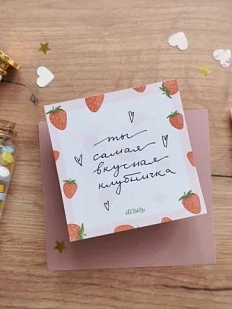 ты
самая
вкусная
клубничка